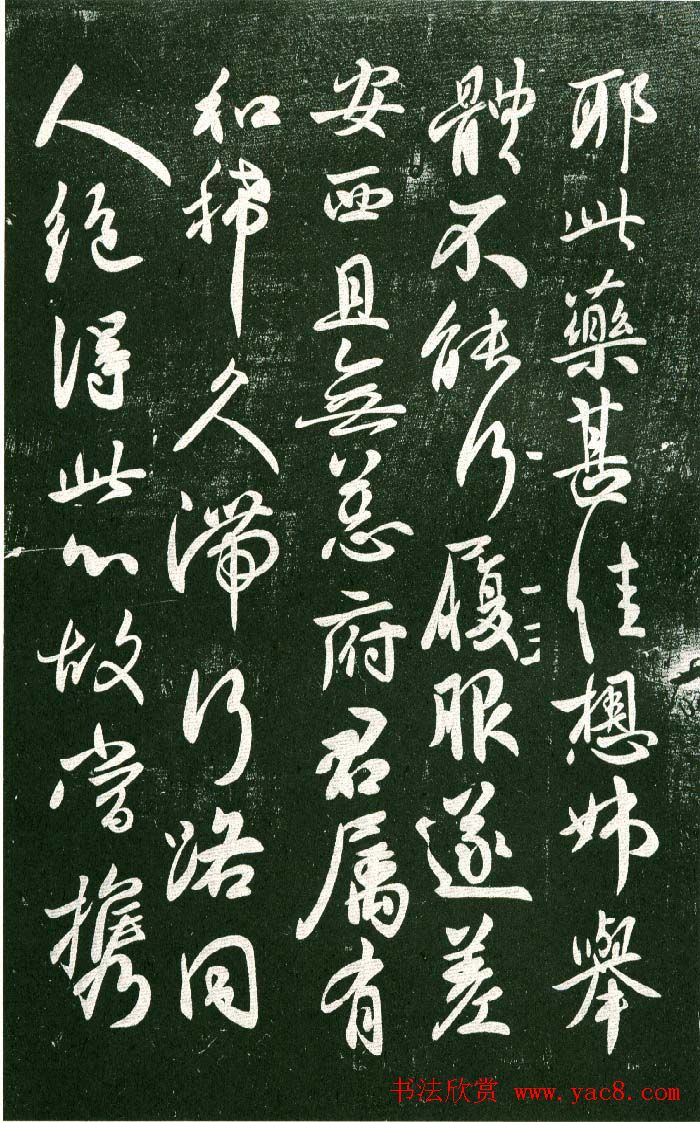 耶此藥甚佳想姊舉
體不能行履眼遂差
安西且無恙府君属有
和久滯行路同
人絶得此故當攜
书法欣赏 www.yac8.com